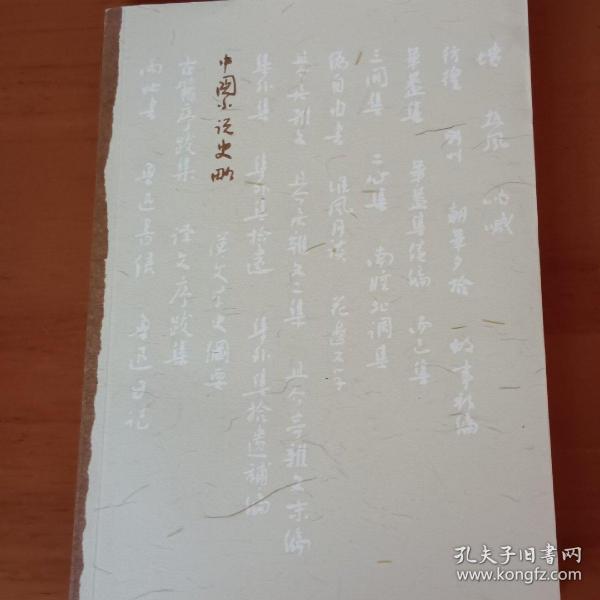 墳 热風 呐喊
彷徨 野草 朝華夕拾 故事新编
華蓋集 華蓋集续编 而已集
三闲集 二心集 南腔北调集
偽自由书 准風月談 花边文学
且介亭雜文 且介亭雜文二集 且介亭雜文末编
集外集 集外集拾遗 集外集拾遗補编
中國小说史略 汉文学史綱要
古籍序跋集 译文序跋集
两地书 鲁迅書信 鲁迅日记
孔夫子旧书网
www.kongfz.com